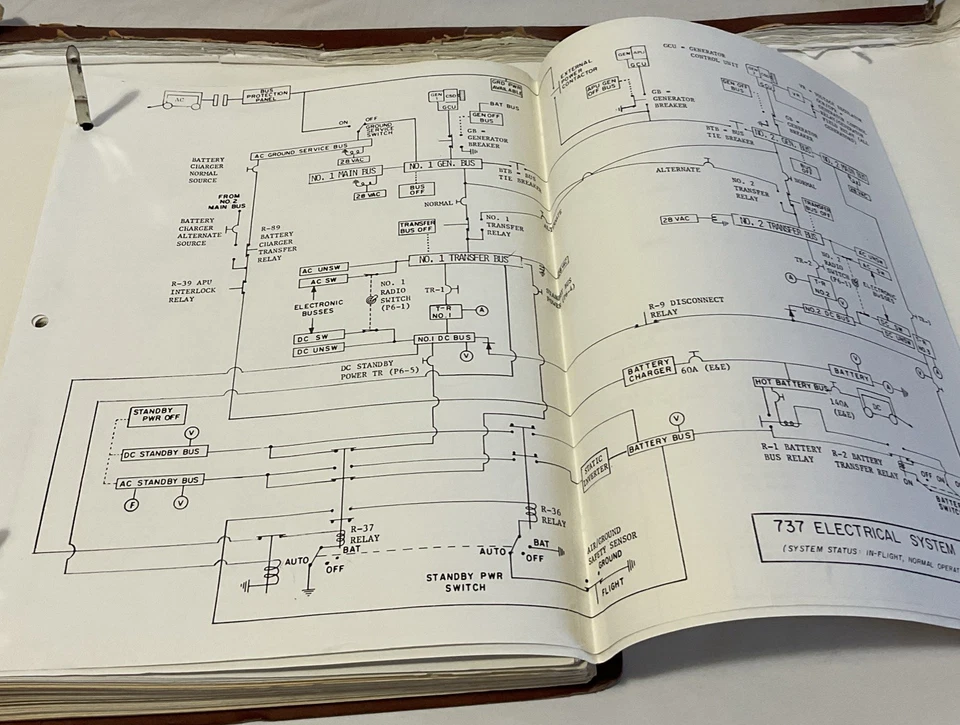 AC
BUS
PROTECTION
PANEL
GRD PWR
AVAILABLE
ON
OFF
GROUND
SERVICE
SWITCH
GEN
CSD
GCU
BAT BUS
GEN OFF
BUS
GB -
GENERATOR
BREAKER
AC GROUND SERVICE BUS
28 VAC
BATTERY
CHARGER
NORMAL
SOURCE
NO. 1 MAIN BUS
NO. 1 GEN. BUS
28 VAC
BUS
OFF
BTB - BUS
TIE BREAKER
FROM
NO. 2
MAIN BUS
BATTERY
CHARGER
ALTERNATE
SOURCE
NORMAL
R-89
BATTERY
CHARGER
TRANSFER
RELAY
TRANSFER
BUS OFF
NO. 1
TRANSFER
RELAY
NO. 1 TRANSFER BUS
R-39 APU
INTERLOCK
RELAY
AC UNSW
AC SW
NO. 1
RADIO
SWITCH
(P6-1)
ELECTRONIC
BUSSES
TR-1
T-R
NO. 1
A
DC SW
DC UNSW
NO.1 DC BUS
V
DC STANDBY
POWER TR (P6-5)
STANDBY
PWR OFF
V
DC STANDBY BUS
AC STANDBY BUS
F
V
R-37
RELAY
R-36
RELAY
AUTO
BAT
OFF
AUTO
BAT
OFF
STANDBY PWR
SWITCH
EXTERNAL
POWER
CONTACTOR
GEN
APU
GCU
GCU - GENERATOR
CONTROL UNIT
APU GEN
OFF BUS
GB -
GENERATOR
BREAKER
GEN OFF
BUS
BTB - BUS
TIE BREAKER
NO. 2 GEN. BUS
NO. 2 MAIN BUS
ALTERNATE
NO. 2
TRANSFER
RELAY
NORMAL
28 VAC
TRANSFER
BUS OFF
28 VAC
NO. 2 TRANSFER BUS
AC UNSW
AC SW
TR-2
NO. 2
RADIO
SWITCH
(P6-1)
ELECTRONIC
BUSSES
A
T-R
NO.2
V
NO.2 DC BUS
DC SW
DC UNSW
R-9 DISCONNECT
RELAY
BATTERY
CHARGER
60A (E&E)
V
BATTERY
A
HOT BATTERY BUS
140A
(E&E)
DC
V
BATTERY BUS
STATIC
INVERTER
R-1 BATTERY
BUS RELAY
R-2 BATTERY
TRANSFER RELAY
ON
OFF
ON
AIR/GROUND
SAFETY SENSOR
GROUND
FLIGHT
737 ELECTRICAL SYSTEM
(SYSTEM STATUS: IN-FLIGHT, NORMAL